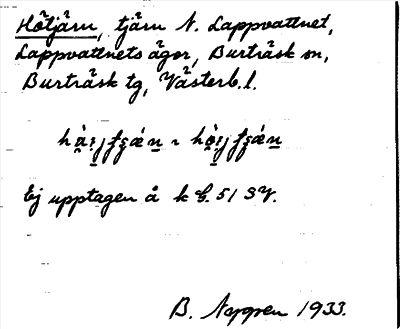 Hötjärn, tjärn N. Lappvattnet,
Lappvattnets ägor, Burträsk sn,
Burträsk tg, Västerb. l.
Ej upptagen å k bl. 51 SV.
B. Nygren 1933.